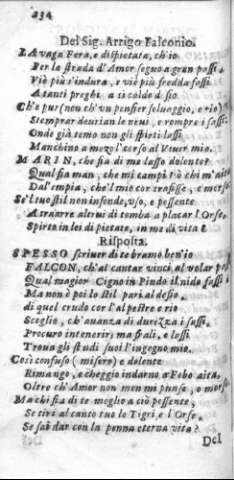 234
Del Sig. Arrigo Falconio.
LA vaga Fera, e dispietata, ch'io
Per la strada d'Amor seguo a gran passi,
Viè più s'indura, e viè più fredda fassi
A tanti preghi, a sì caldo desio.
Ch'e pur (non ch'un pensier seluaggio, e rio)
Stemprar deurian le neui, e rompre i sassi:
Onde già temo non gli spirti lassi
Manchino a mezo l'corso al viuer mio.
MARIN, che fia di me lasso dolente?
Qual fia man, che mi campi
Dal'empia, che'l mio cor trafisse, e
Se'l tuo stil non infonde, uso, e possente
A trarre altrui di tomba a placar l'Orse,
Spirto in lei di pietate, in me di vita?
Risposta.
SPESSO scriuer di te bramo ben'io
FALCON, ch'al cantar vinci, al volar passi
Qual magior Cigno in Pindo il nido fassi
Ma non è poi lo stil pari al desio.
di quel crudo cor l'alpestre e rio
Scoglio, ch'auanza di durezza i sassi,
Procuro inteneriri, ma frali, e lassi
Troua gli studi suoi l'ingegno mio.
Così confuso (misero) e dolente
Rimango, e cheggio indarno a Febo aita,
Oltre ch'Amor non men mi punse, e
Ma chi fia di te meglio a ciò possente,
Se tiri al canto tuo le Tigri, e l'Orse,
Se sai dar con la penna eterna vita?
Del